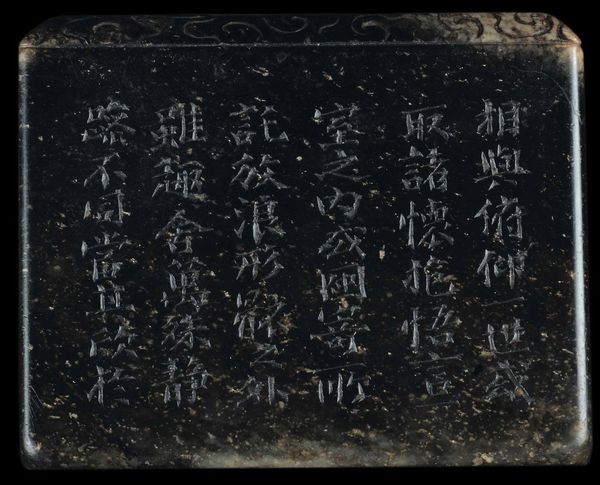 相與俯仰一世或
取諸懷抱悟言一
室之内或因寄所
託放浪形骸之外
雖趣舍萬殊靜
躁不同當其欣於